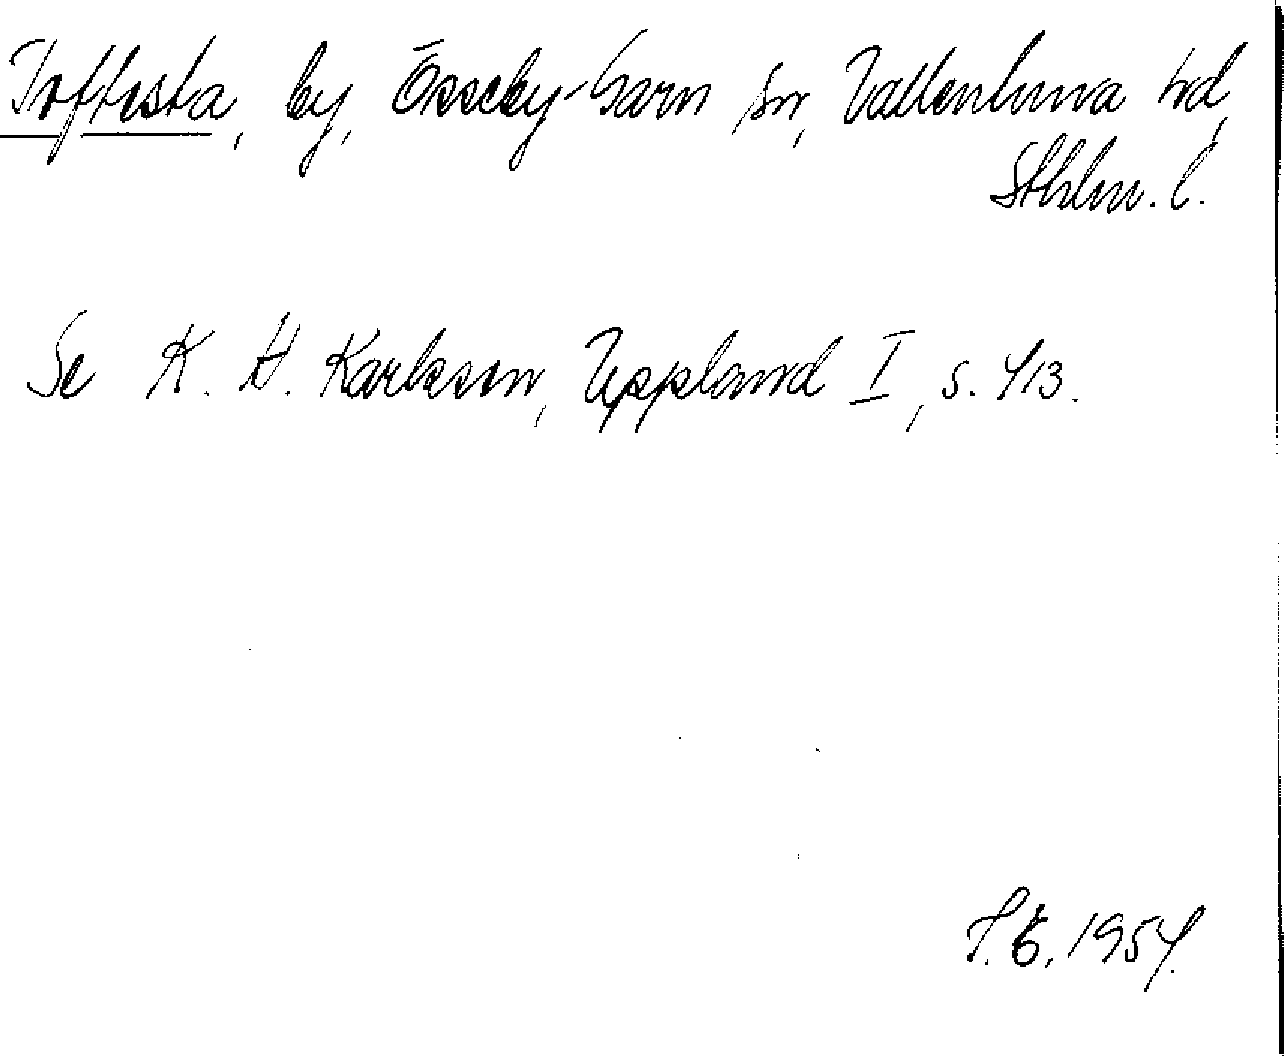 Toftesta, by, Össeby-Garn sn, Vallentuna hd,
Sthlm. l.
Se K. H. Karlsson, Uppland I, s. 413.
1954.